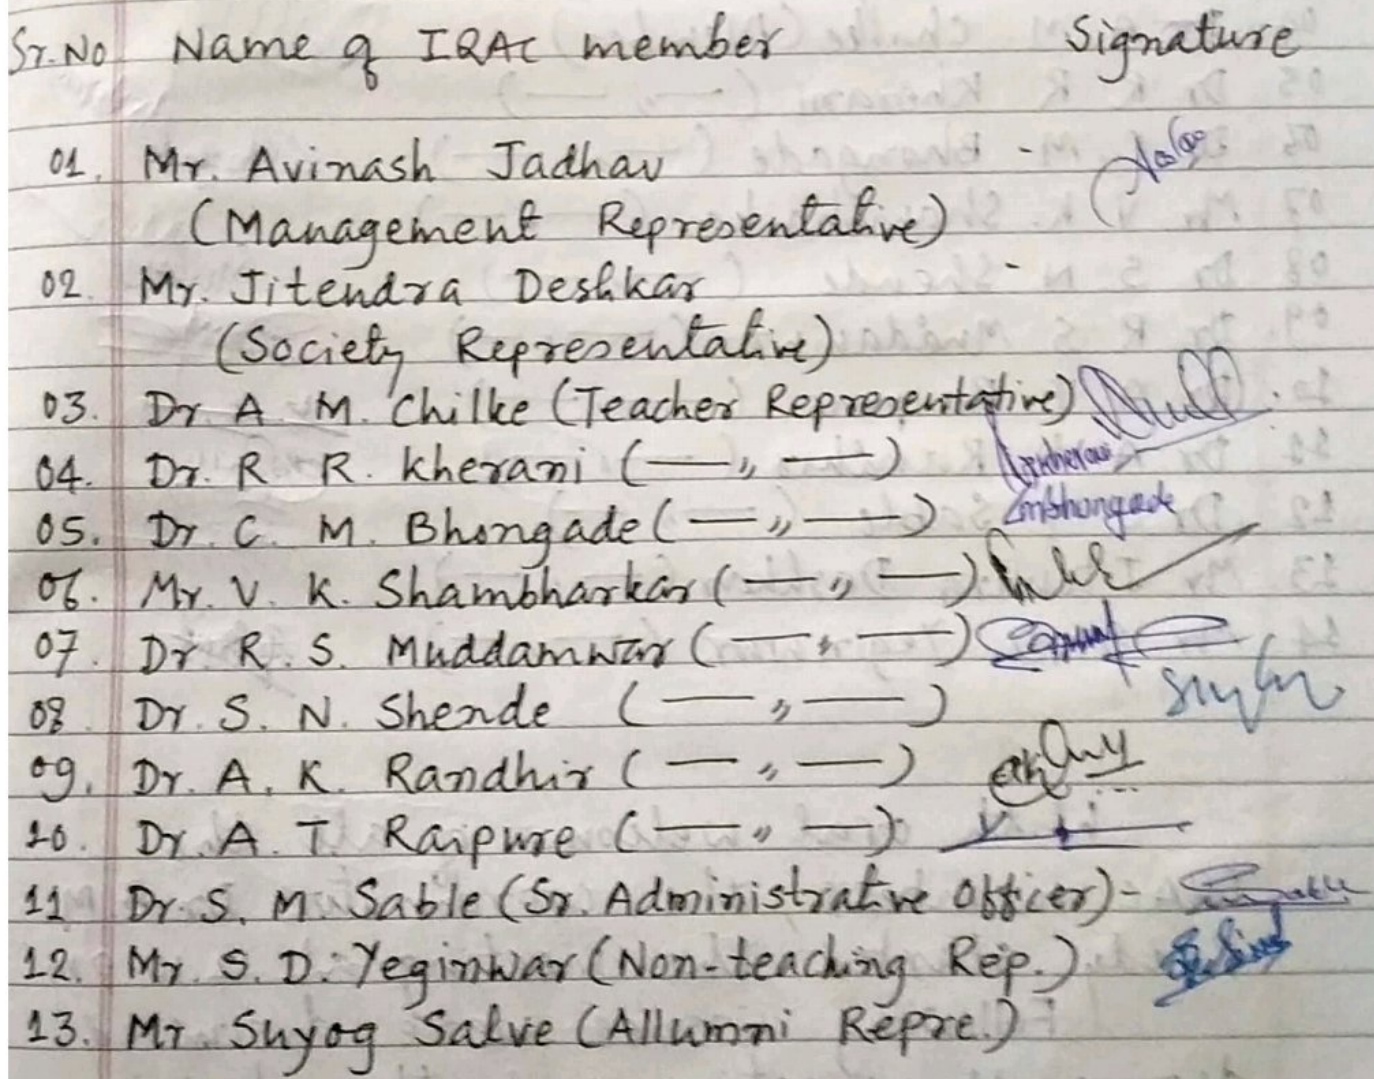 Sr.No Name of IQAC member Signature
01. Mr. Avinash Jadhav -
(Management Representative)
02. Mr. Jitendra Deshkar -
(Society Representative)
03. Dr A. M. Chilke (Teacher Representative)
04. Dr. R R. Kherani (— ,, —) Rrkherani
05. Dr. C. M. Bhongade (— ,, —) Cmbhongade
06. Mr. V. K. Shambharkar (— ,, —)
07. Dr R. S. Muddamwar (— ,, —)
08. Dr. S. N. Shende (— ,, —)
09. Dr. A. K. Randhir (— ,, —)
10. Dr. A. T. Raipure (— ,, —)
11 Dr. S. M. Sable (Sr. Administrative Officer) -
12. Mr S. D. Yeginwar (Non-teaching Rep.)
13. Mr. Suyog Salve (Allumni Repre.)